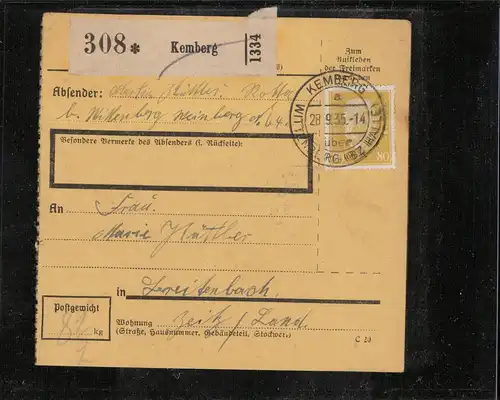 308* Kemberg 1334
Zum
Aufkleben
der Freimarken
Absender: Martin Hüttler, Rotta
b. Wittenberg
KEMBERG
a
28.9.35.-14
über
BZ HALLE
80
Besondere Vermerke des Absenders (i. Rückseite):
An Frau
Marie Hüttler
in Breitenbach
Zeitz / Land
Wohnung
(Straße, Hausnummer, Gebäudeteil, Stockwerk)
Postgewicht
kg
C 20